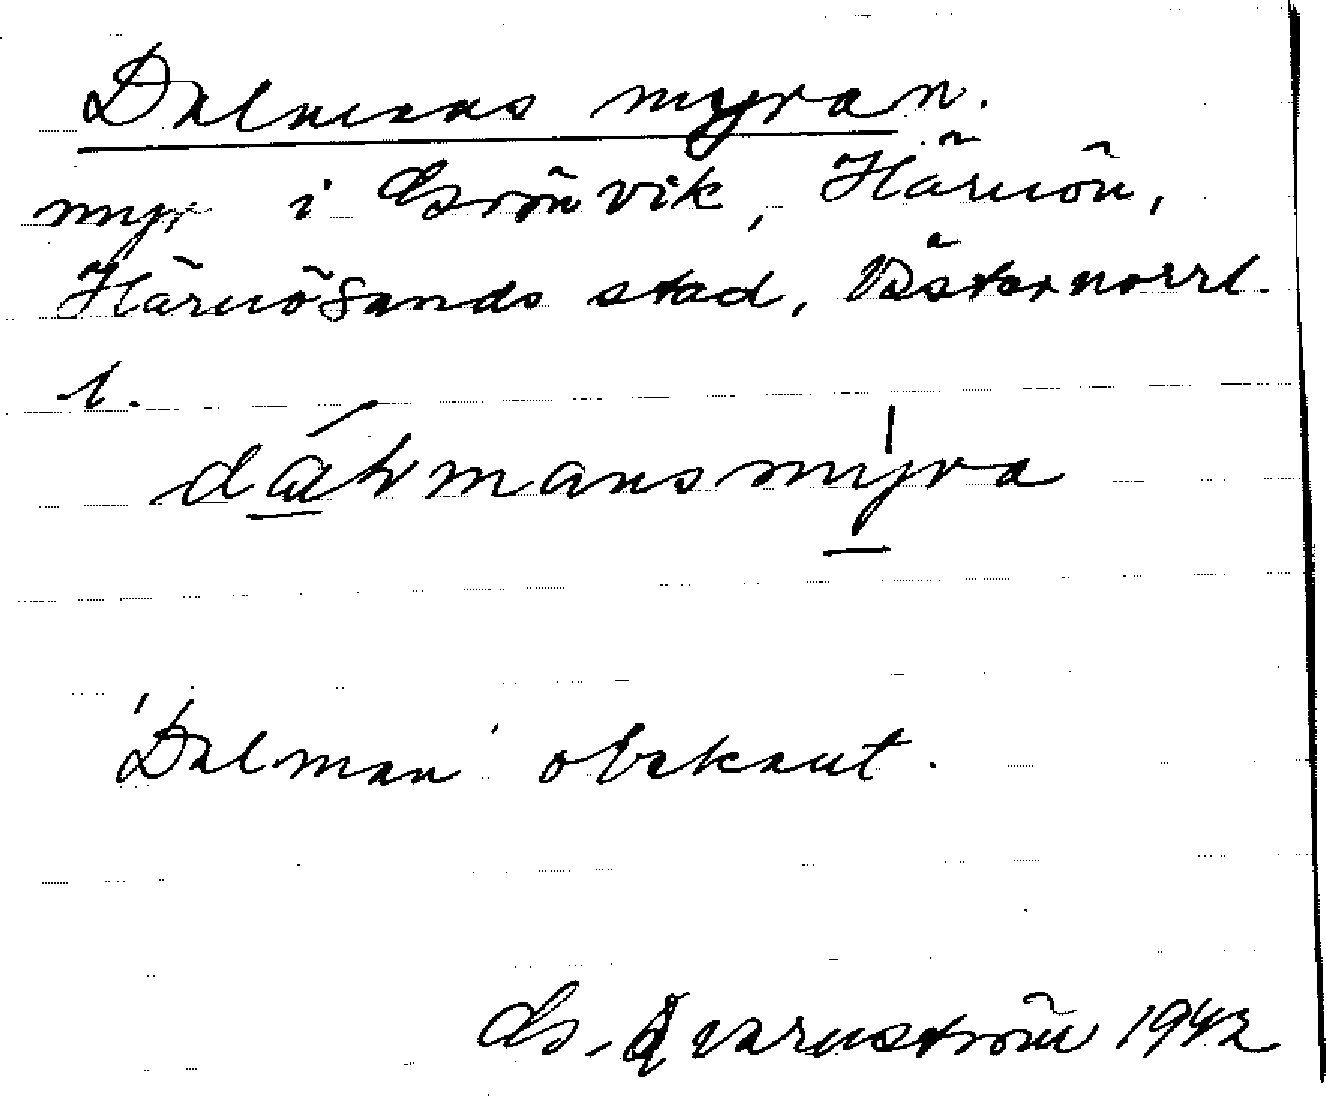 Dalmans myran.
myr i Grönvik, Härnön,
Härnösands stad, Västernorrl.
l.
dáLmansmy̍ra
'Dalman' obekant.
G. Qvarnström 1942